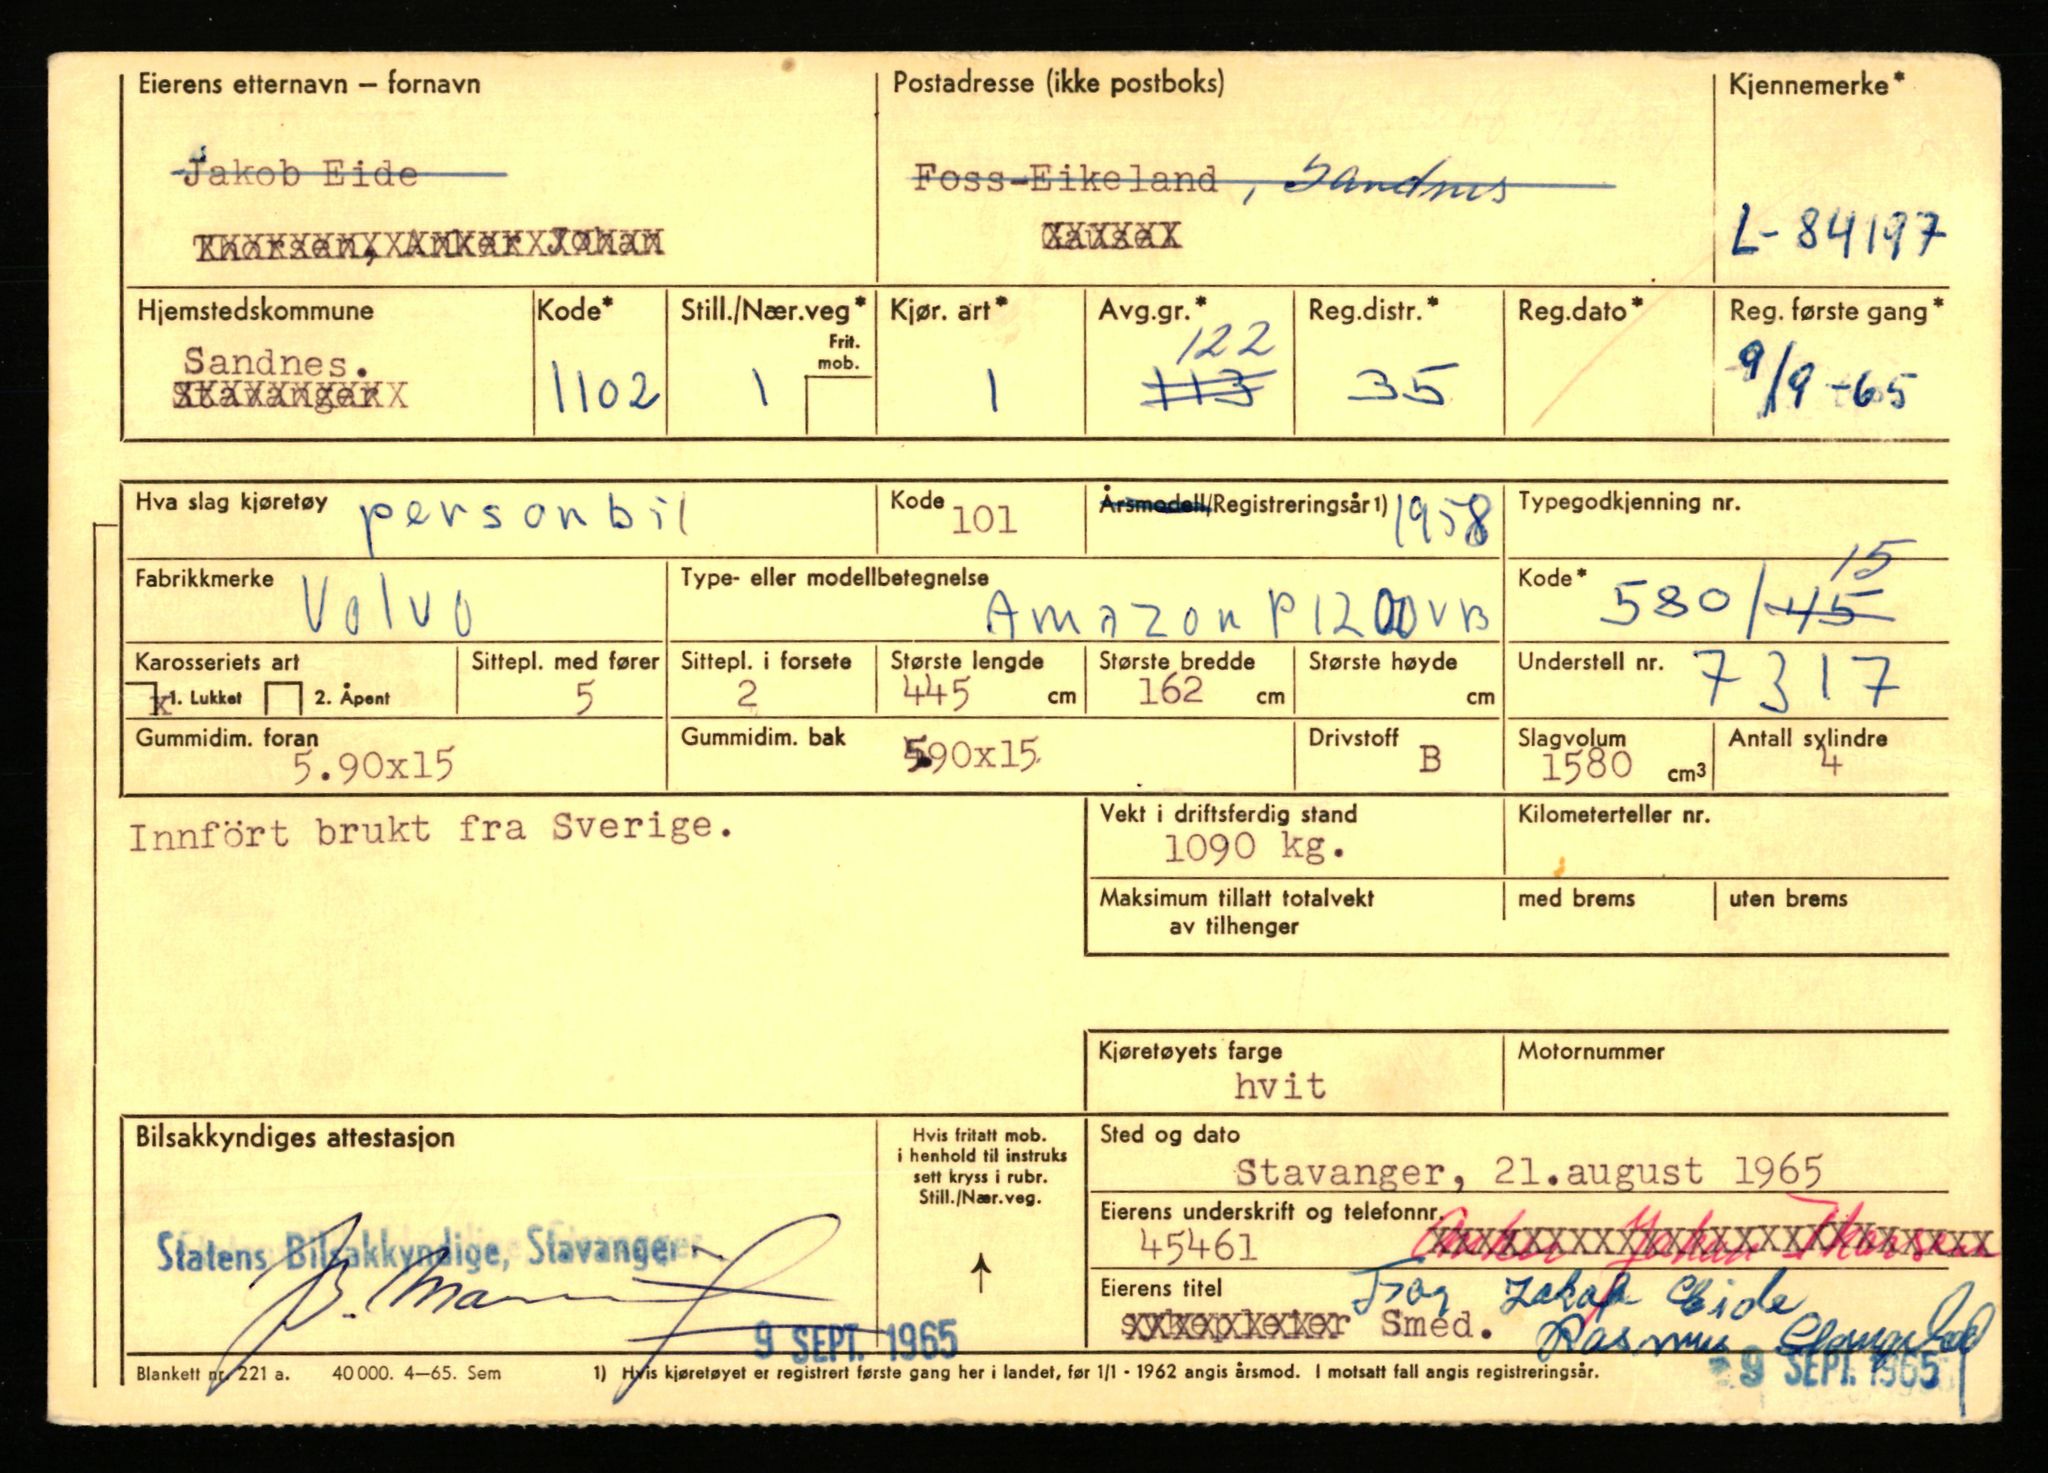 Eierens etternavn — fornavn
Postadresse (ikke postboks)
Kjennemerke*
Jakob Eide
Foss-Eikeland, Sandnes
Thorsen, Anker Johan
L-84197
Hjemstedskommune
Kode*
Still./Nær.veg*
Kjør. art*
Avg.gr.*
Reg.distr.*
Reg.dato*
Reg. første gang*
Frit. mob.
Sandnes.
Stavanger
1102
1
1
122
113
35
9/9-65
Hva slag kjøretøy personbil
Kode 101
Årsmodell/Registreringsår 1) 1958
Typegodkjenning nr.
Fabrikkmerke Volvo
Type- eller modellbetegnelse
Amazon P1200VB
Kode* 580/45
15
Karosseriets art
x 1. Lukket 2. Åpent
Sittepl. med fører
5
Sittepl. i forsete
2
Største lengde
445 cm
Største bredde
162 cm
Største høyde
cm
Understell nr. 7317
Gummidim. foran
5.90x15
Gummidim. bak 5.90x15
Drivstoff B
Slagvolum
1580 cm3
Antall sylindre
4
Innfört brukt fra Sverige.
Vekt i driftsferdig stand
1090 kg.
Kilometerteller nr.
Maksimum tillatt totalvekt
av tilhenger
med brems
uten brems
Kjøretøyets farge
hvit
Motornummer
Bilsakkyndiges attestasjon
Hvis fritatt mob.
i henhold til instruks
sett kryss i rubr.
Still./Nær.veg.
Sted og dato
Stavanger, 21.august 1965
Eierens underskrift og telefonnr.
45461 Anker Johan Thorsen
Statens Bilsakkyndige, Stavanger
Eierens titel
Jakob Eide
sykepleier Smed.
Rasmus
9 SEPT. 1965
9 SEPT. 1965
Blankett nr. 221 a. 40000. 4—65. Sem
1) Hvis kjøretøyet er registrert første gang her i landet, før 1/1 - 1962 angis årsmod. I motsatt fall angis registreringsår.